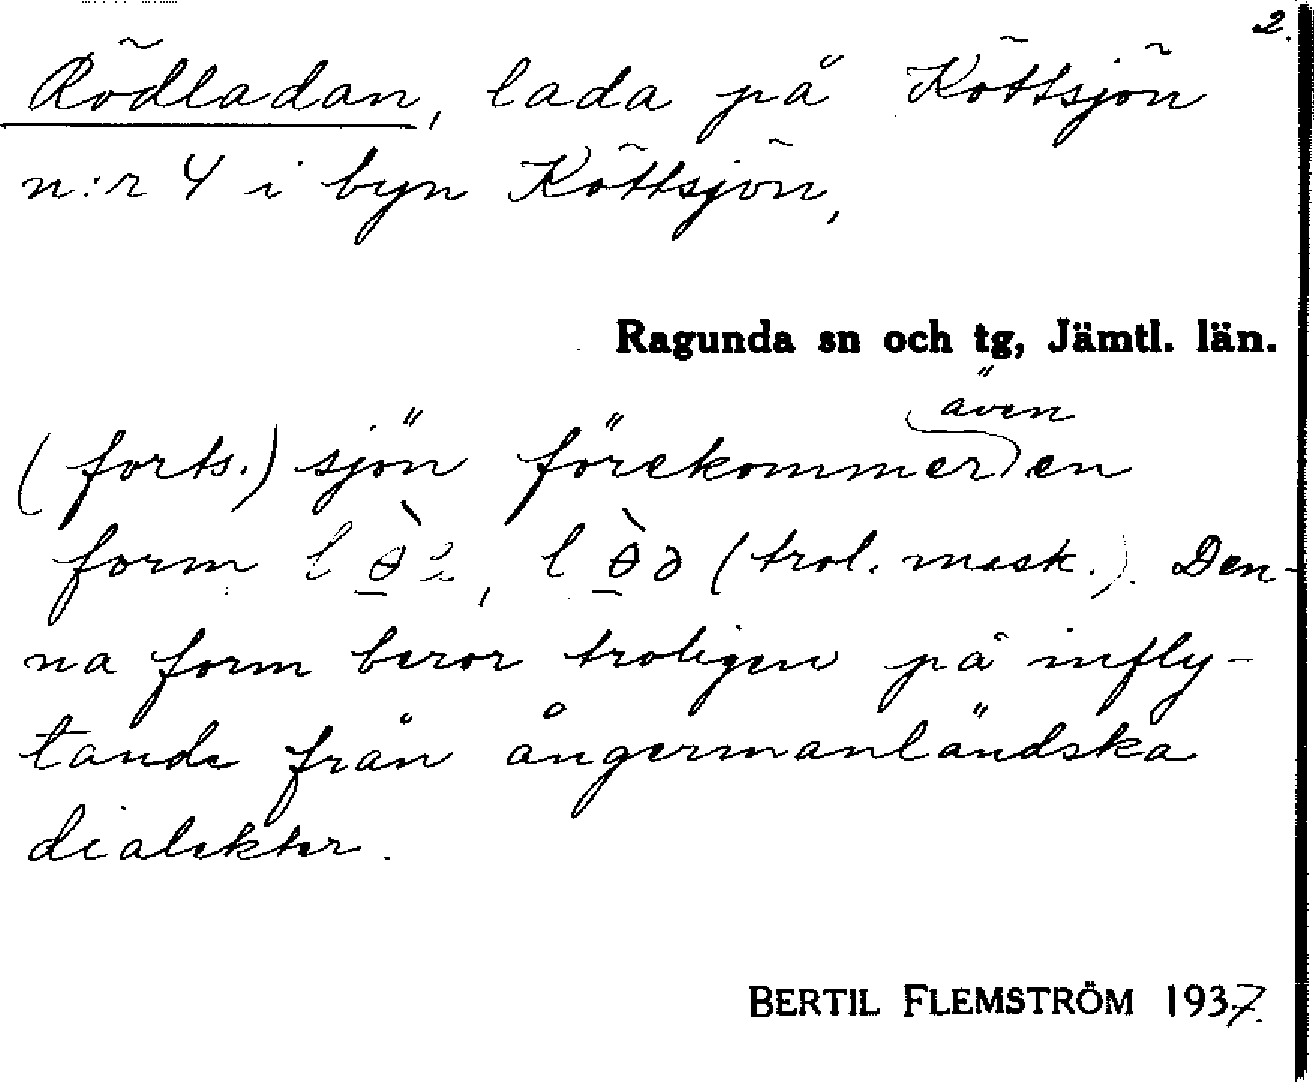 2.
Rödladan, lada på Köttsjön
n:r 4 i byn Köttsjön,
Ragunda sn och tg, Jämtl. län.
även
(forts.) sjön förekommer en
form l, l (trol. mask.). Den-
na form beror troligen på infly-
tande från ångermanländska
dialekter.
BERTIL FLEMSTRÖM 1937.